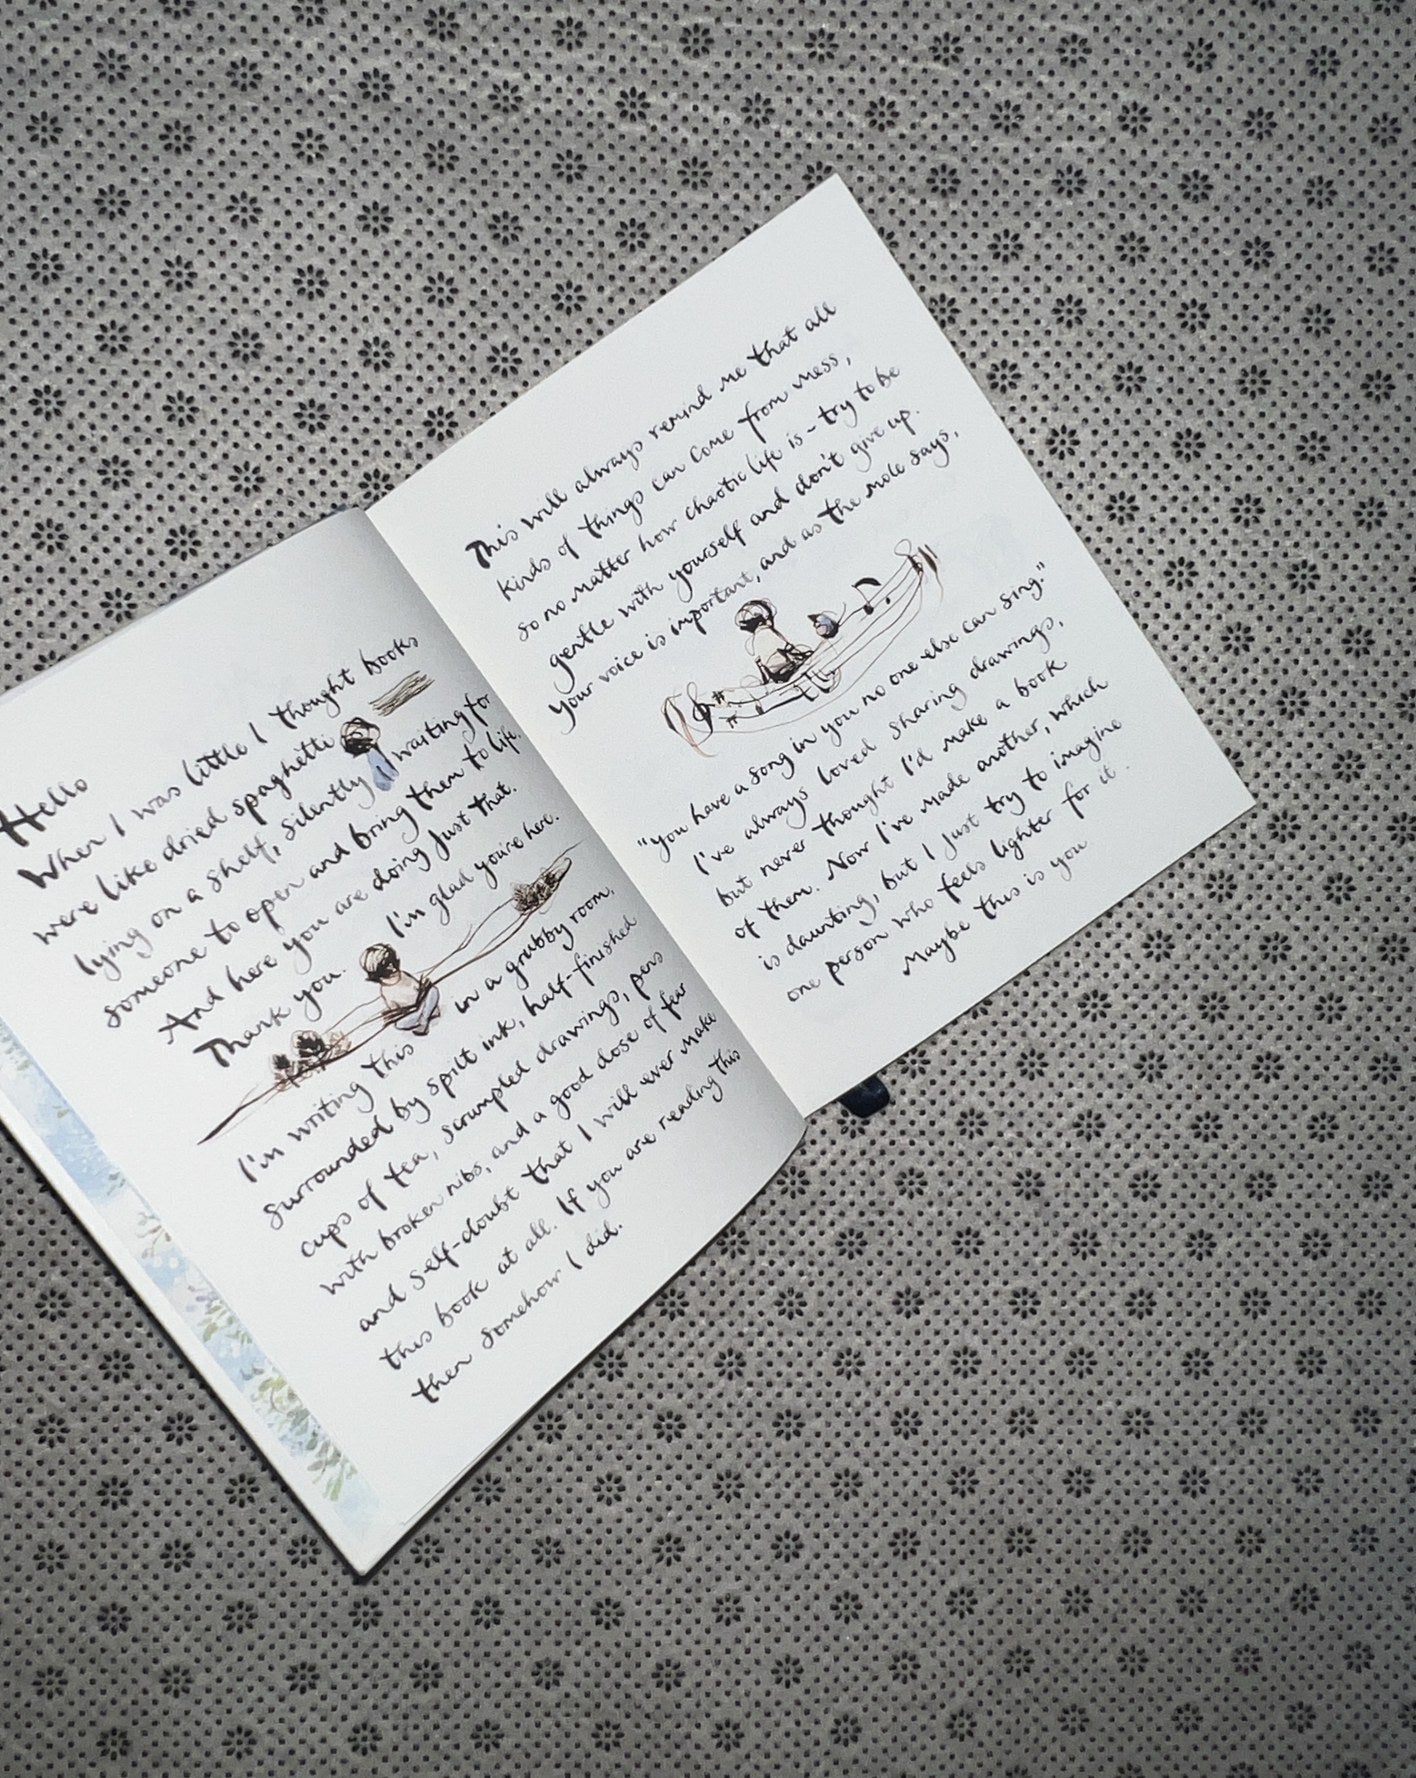 Hello
When I was little I thought books
were like dried spaghetti
lying on a shelf, silently waiting for
someone to open and bring them to life.
And here you are doing just that.
Thank you. I'm glad you're here.
I'm writing this in a grubby room,
surrounded by spilt ink, half-finished
cups of tea, scrumpled drawings, pens
with broken nibs, and a good dose of fear
and self-doubt that I will ever make
this book at all. If you are reading this
then somehow I did.
This will always remind me that all
kinds of things can come from mess,
so no matter how chaotic life is – try to be
gentle with yourself and don't give up.
Your voice is important, and as the mole says,
"You have a song in you no one else can sing."
I've always loved sharing drawings,
but never thought I'd make a book
of them. Now I've made another, which
is daunting, but I just try to imagine
one person who feels lighter for it.
Maybe this is you